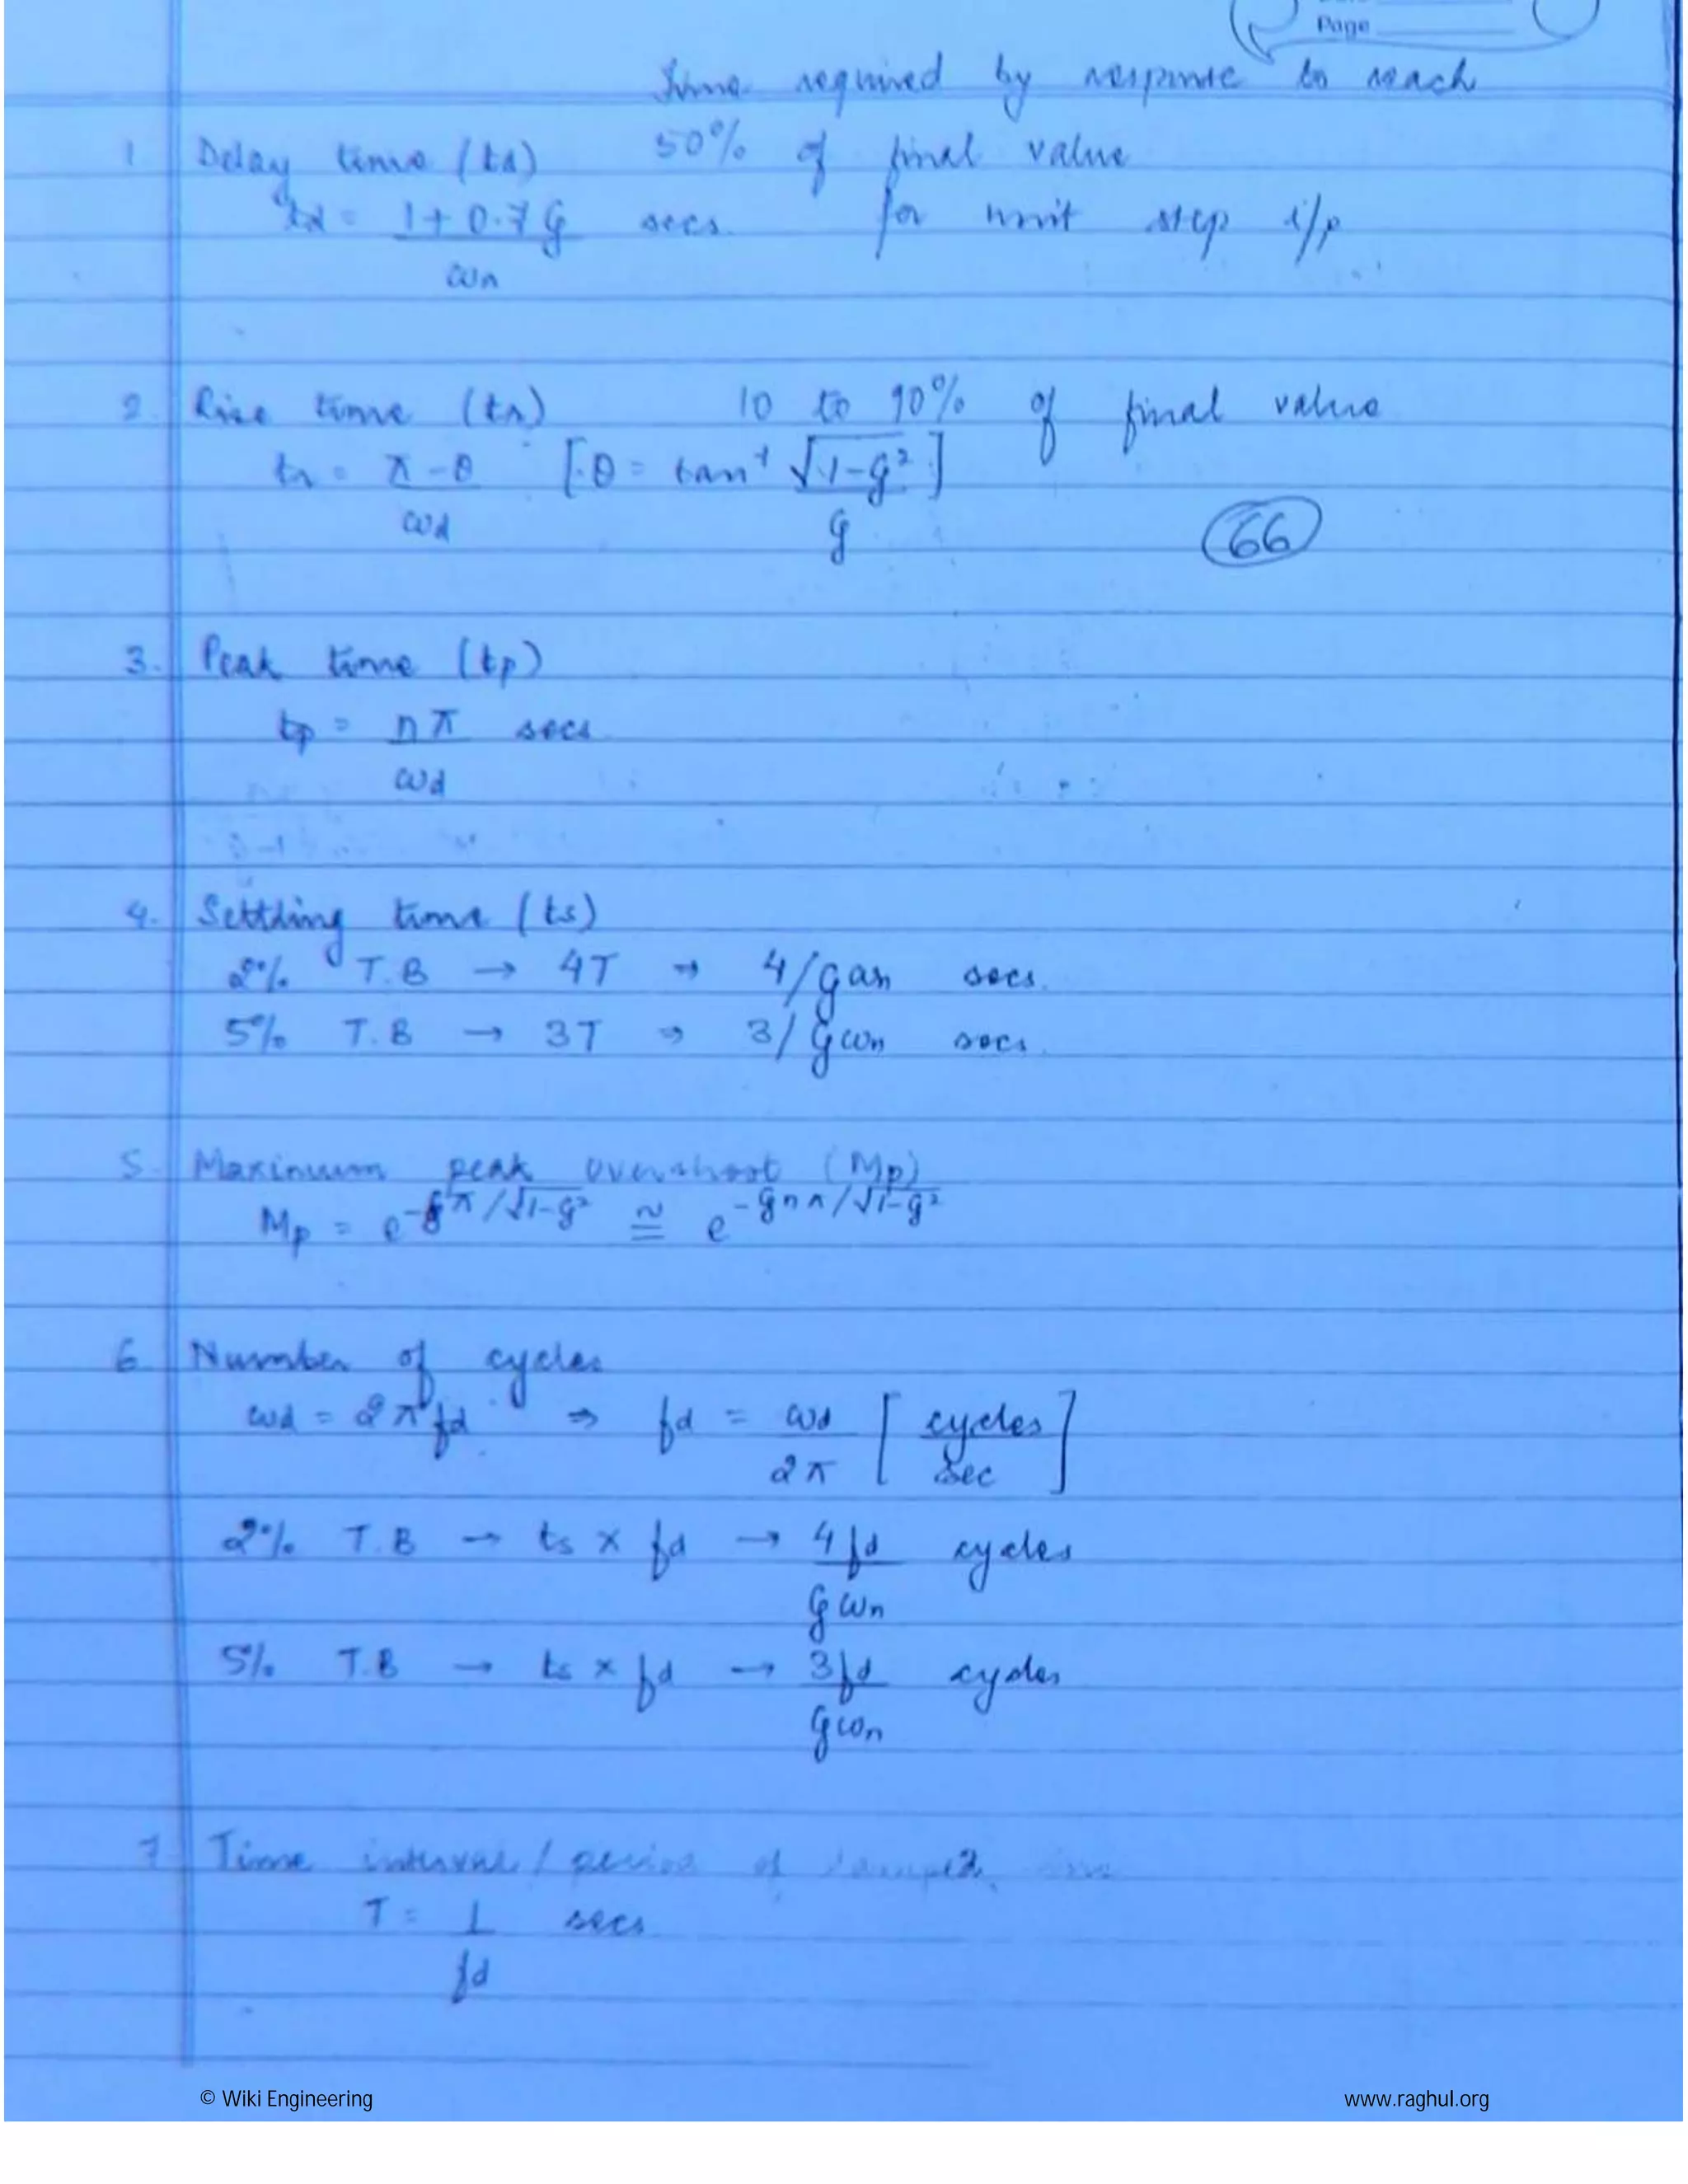 Page
Time required by response to reach
1 Delay time (td) 50% of final value
td = 1 + 0.7ζ secs for unit step i/p
ωn
2. Rise time (tr) 10 to 90% of final value
tr = π - θ [θ = tan⁻¹ √1-ζ² ]
ωd ζ
66
3. Peak time (tp)
tp = nπ secs
ωd
4. Settling time (ts)
2% T.B → 4T ⇒ 4/ζωn secs.
5% T.B → 3T ⇒ 3/ζωn secs.
5. Maximum peak overshoot (Mp)
Mp = e^-ζπ/√1-ζ² ≅ e^-ζnπ/√1-ζ²
6 Number of cycles
ωd = 2πfd ⇒ fd = ωd [ cycles ]
2π sec
2% T.B → ts × fd → 4fd cycles
ζωn
5% T.B → ts × fd → 3fd cycles
ζωn
7 Time interval / period of damped
T = 1 secs
fd
© Wiki Engineering www.raghul.org